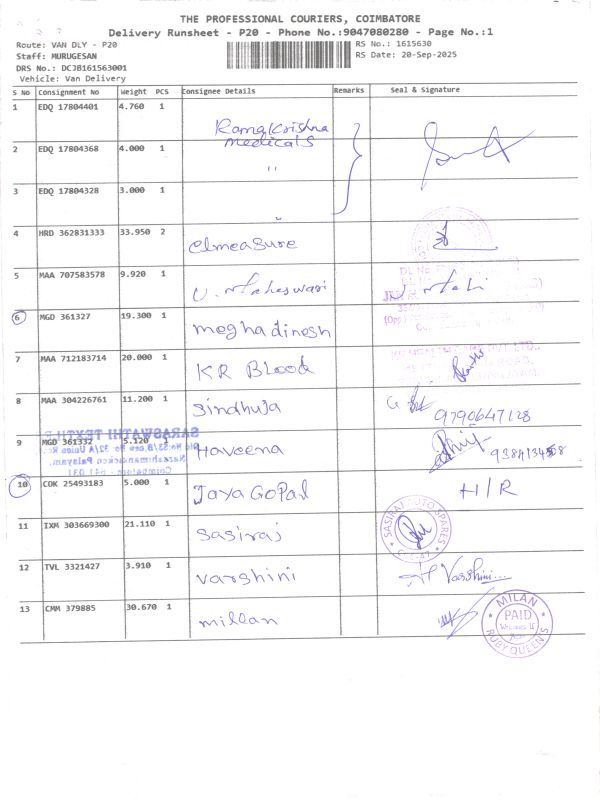 THE PROFESSIONAL COURIERS, COIMBATORE
Delivery Runsheet - P20 - Phone No.:9047080280 - Page No.:1
Route: VAN DLY - P20
Staff: MURUGESAN
DRS No.: DCJB161563001
Vehicle: Van Delivery
RS No.: 1615630
RS Date: 20-Sep-2025
S No Consignment No Weight PCS Consignee Details Remarks Seal & Signature
1 EDQ 17804401 4.760 1 Ramakrishna
medicals
2 EDQ 17804368 4.000 1 "
3 EDQ 17804328 3.000 1 "
4 HRD 362831333 33.950 2 elmeasure
5 MAA 707583578 9.920 1 U. Maheswari
6 MGD 361327 19.300 1 meghadinesh
7 MAA 712183714 20.000 1 KR Blood
8 MAA 304226761 11.200 1 Sindhuja 9790647128
SARASWATHI
9 MGD 361332 5.120 1 Haveena
10 COK 25493183 5.000 1 Jaya Gopal H/R
11 IXM 303669300 21.110 1 Sasiraj SASIRAJ AUTO SPARES
12 TVL 3321427 3.910 1 Varshini Varshini
13 CMM 379885 30.670 1 millan MILAN
PAID
RUBY QUEEN'S